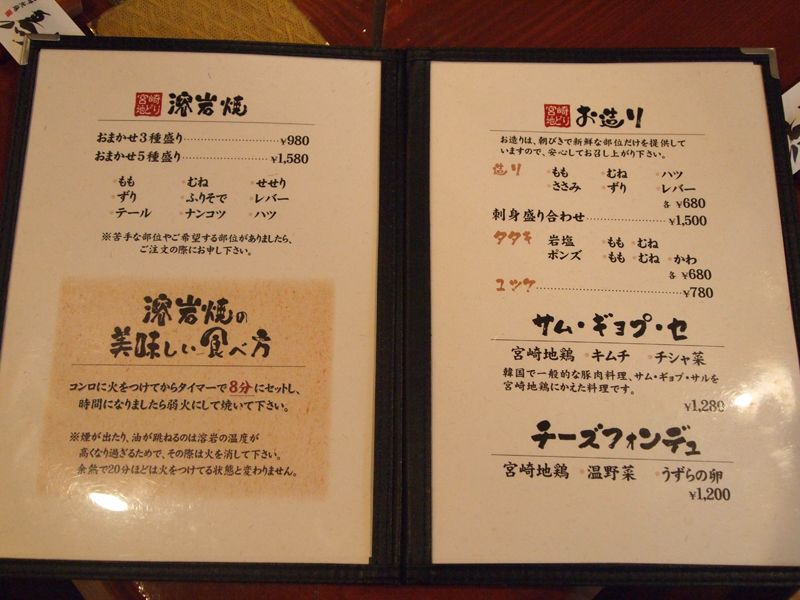 宮崎地どり 溶岩焼
おまかせ3種盛り ¥980
おまかせ5種盛り ¥1,580
もも むね せせり
ずり ふりそで レバー
テール ナンコツ ハツ
※苦手な部位やご希望する部位がありましたら、
ご注文の際にお申し下さい。
溶岩焼の
美味しい食べ方
コンロに火をつけてからタイマーで8分にセットし、
時間になりましたら弱火にして焼いて下さい。
※煙が出たり、油が跳ねるのは溶岩の温度が
高くなり過ぎるためで、その際は火を消して下さい。
余熱で20分ほどは火をつけてる状態と変わりません。
宮崎地どり お造り
お造りは、朝びきで新鮮な部位だけを提供して
いますので、安心してお召し上がり下さい。
造り もも むね ハツ
ささみ ずり レバー
各 ¥680
刺身盛り合わせ ¥1,500
タタキ 岩塩 もも むね
ポンズ もも むね かわ
各 ¥680
ユッケ ¥780
サム・ギョプ・セ
宮崎地鶏 キムチ チシャ菜
韓国で一般的な豚肉料理、サム・ギョプ・サルを
宮崎地鶏にかえた料理です。
¥1,280
チーズフォンデュ
宮崎地鶏 温野菜 うずらの卵
¥1,200